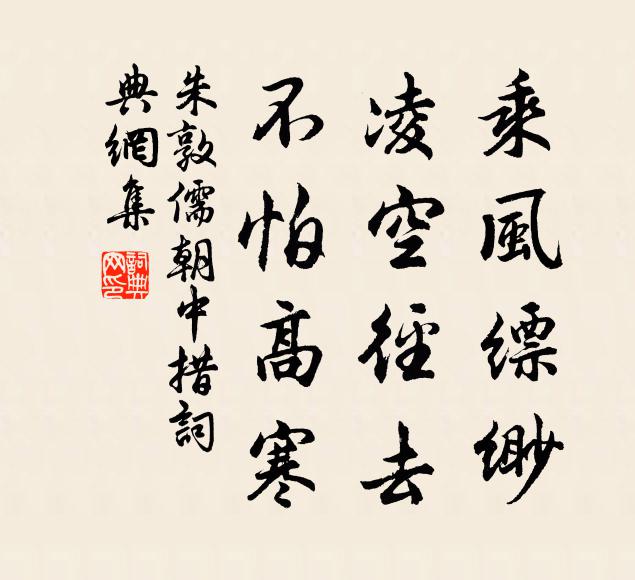 乘風縹緲
凌空徑去
不怕高寒
朱敦儒朝中措詞
典網集
詞典網印